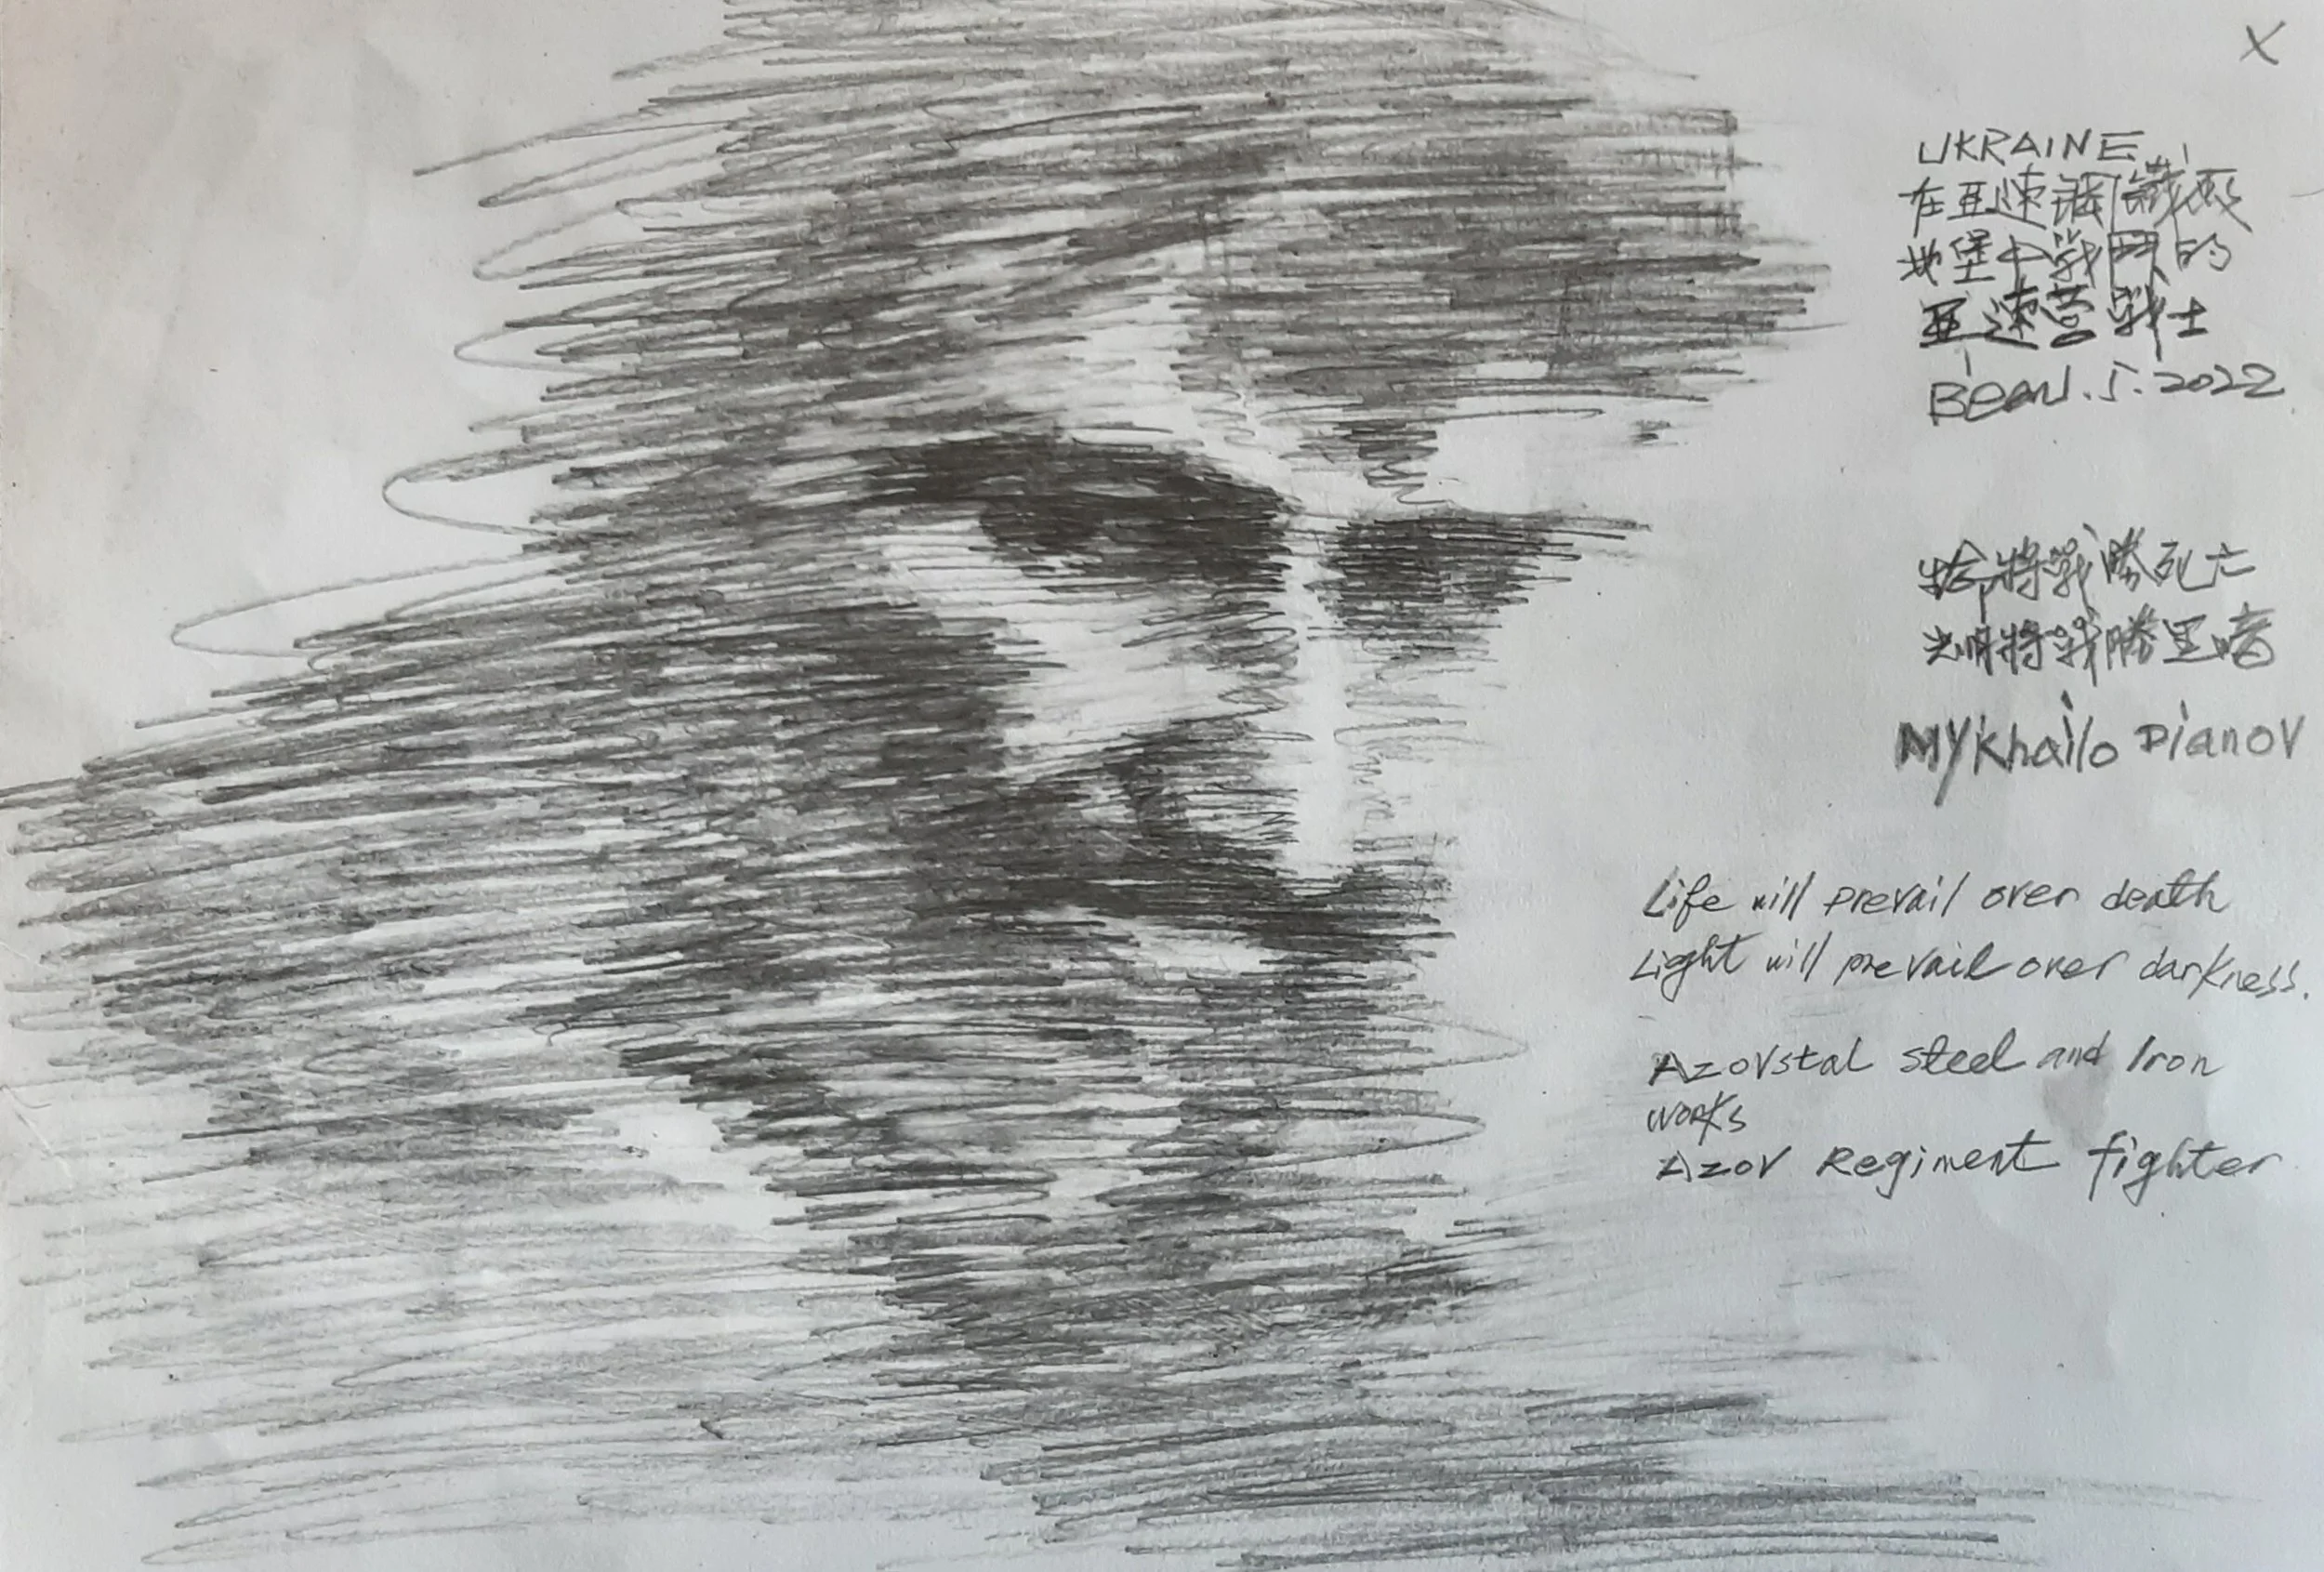 X
UKRAINE
在亚速鋼鐵
地堡中戰鬥的
亚速营戰士
Bean.5.2022
生命將戰勝死亡
光明將戰勝黑暗
MYKhailo Dianov
Life will prevail over death
Light will prevail over darkness.
Azovstal steel and Iron
works
Azov Regiment fighter